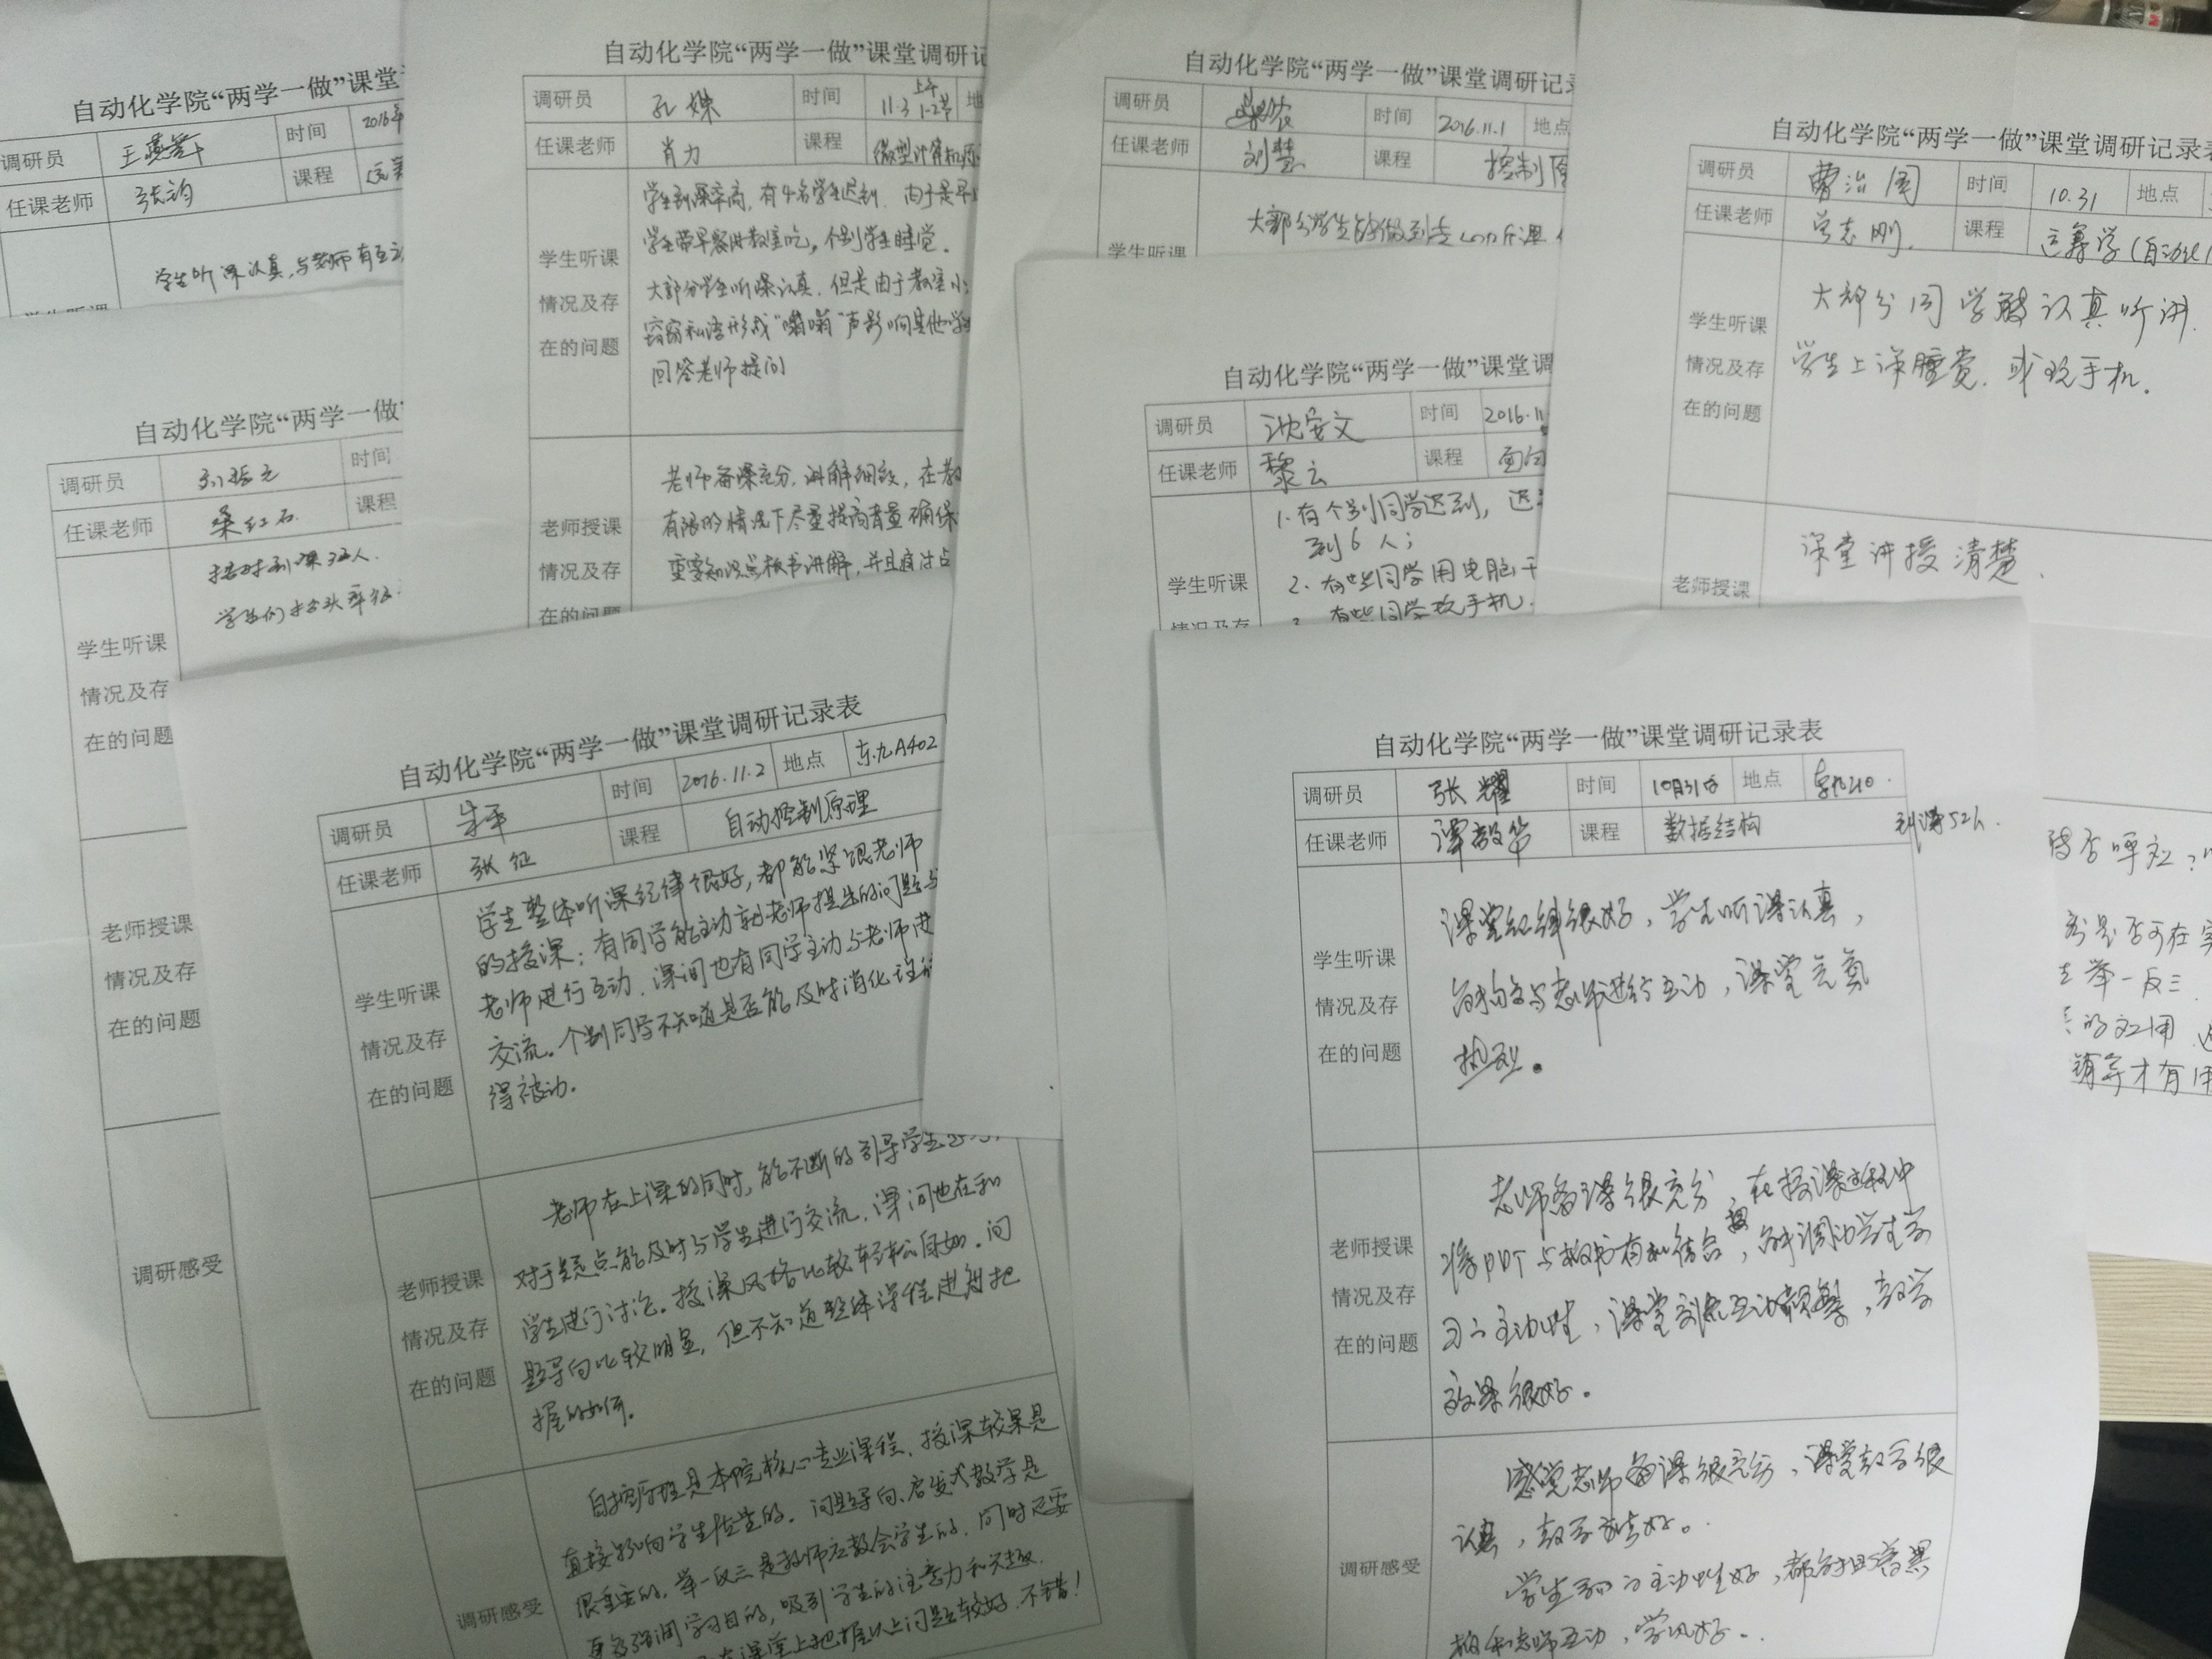 自动化学院“两学一做”课堂
调研员 王燕 时间 2016年
任课老师 张均 课程
学生听课认真,与老师有互
学生听课
自动化学院“两学一做”课堂调研记
调研员 孔姝 时间 11.3 上午1-2节 地
任课老师 肖力 课程 微型计算机原
学生到课率高,有4名学生迟到.由于是早
学生带早餐进教室吃,个别学生睡觉.
学生听课
大部分学生听课认真.但是由于教室小
情况及存
窃窃私语形成“嗡嗡”声影响其他学
在的问题
回答老师提问
老师备课充分,讲解细致,在教
老师授课 有限的情况下尽量提高音量确保
情况及存 重要知识点板书讲解,并且
在的问
自动化学院“两学一做”课堂调研记录
调研员 时间 2016.11.1 地点
任课老师 刘慧 课程 控制原
大部分学生能做到
学生听课
自动化学院“两学一做”课堂调研记录表
调研员 曹治国 时间 10.31 地点
任课老师 志刚 课程 运筹学(自动化
大部分同学能认真听讲.
学生听课
学生上课睡觉,或玩手机.
情况及存
在的问题
课堂讲授清楚.
老师授课
自动化学院“两学一做
调研员 刘振元 时间
任课老师 桑红石 课程
按时到课
学生们抬头率
学生听课
情况及存
在的问题
老师授课
情况及存
在的问题
调研感受
自动化学院“两学一做”课堂调研
调研员 沈安文 时间 2016.11
任课老师 黎云 课程 面向
1.有个别同学迟到,迟
到6人;
学生听课 2.有些同学用电脑干
情况及存 3.有些同学玩手机.
自动化学院“两学一做”课堂调研记录表
调研员 朱平 时间 2016.11.2 地点 东九A402
任课老师 张征 课程 自动控制原理
学生整体听课纪律很好,都能紧跟老师
的授课;有同学能主动就老师提出的问题与
学生听课 老师进行互动.课间也有同学主动与老师进
情况及存 交流。个别同学不知道是否能及时消化
在的问题 得被动.
老师在上课的同时,能不断的引导学生
对于疑点能及时与学生进行交流.课间也在和
老师授课 学生进行讨论.授课风格比较轻松自如.问
情况及存 题导向比较明显,但不知道整体课程进度把
在的问题 握的如何.
自控原理是本院核心专业课程.授课效果是
直接影响学生信心的.问题导向、启发式教学是
很重要的.举一反三是教师应教会学生的.同时还要
调研感受 更多强调学习目的,吸引学生的注意力和兴趣.
在课堂上把握以上问题较好.不错!
自动化学院“两学一做”课堂调研记录表
调研员 张耀 时间 10月31日 地点 东九210.
任课老师 谭毅华 课程 数据结构 到课52人.
课堂纪律很好,学生听课认真,
学生听课
能够与老师进行互动,课堂气氛
情况及存
在的问题 热烈。
老师备课很充分,在授课过程中
老师授课 将PPT与板书有机结合,能调动学生学
情况及存
在的问题 习的主动性,课堂互动频繁,教学
效果很好。
感觉老师备课很充分,课堂教学很
认真,教学效果好。
调研感受 学生学习主动性好,都能
和老师互动,学风好.
是否可在
举一反三
的应用
辅导才有